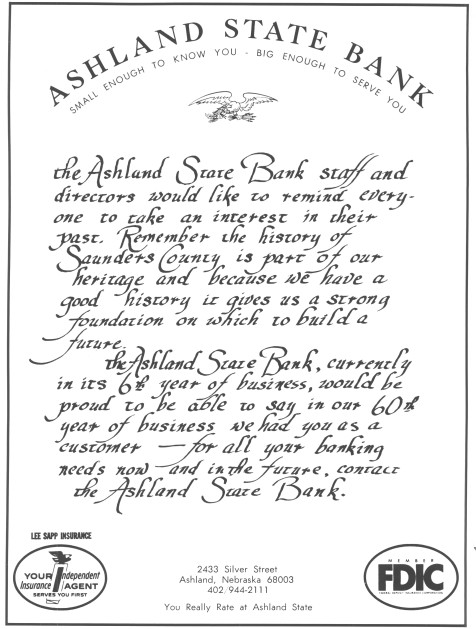 ASHLAND STATE BANK
SMALL ENOUGH TO KNOW YOU - BIG ENOUGH TO SERVE YOU
the Ashland State Bank staff and
directors would like to remind every-
one to take an interest in their
past. Remember the history of
Saunders County is part of our
heritage and because we have a
good history it gives us a strong
foundation on which to build a
future.
the Ashland State Bank, currently
in its 6th year of business, would be
proud to be able to say in our 60th
year of business we had you as a
customer — for all your banking
needs now and in the future, contact
the Ashland State Bank.
LEE SAPP INSURANCE
YOUR Independent
Insurance AGENT
SERVES YOU FIRST
2433 Silver Street
Ashland, Nebraska 68003
402/944-2111
You Really Rate at Ashland State
MEMBER
FDIC
FEDERAL DEPOSIT INSURANCE CORPORATION